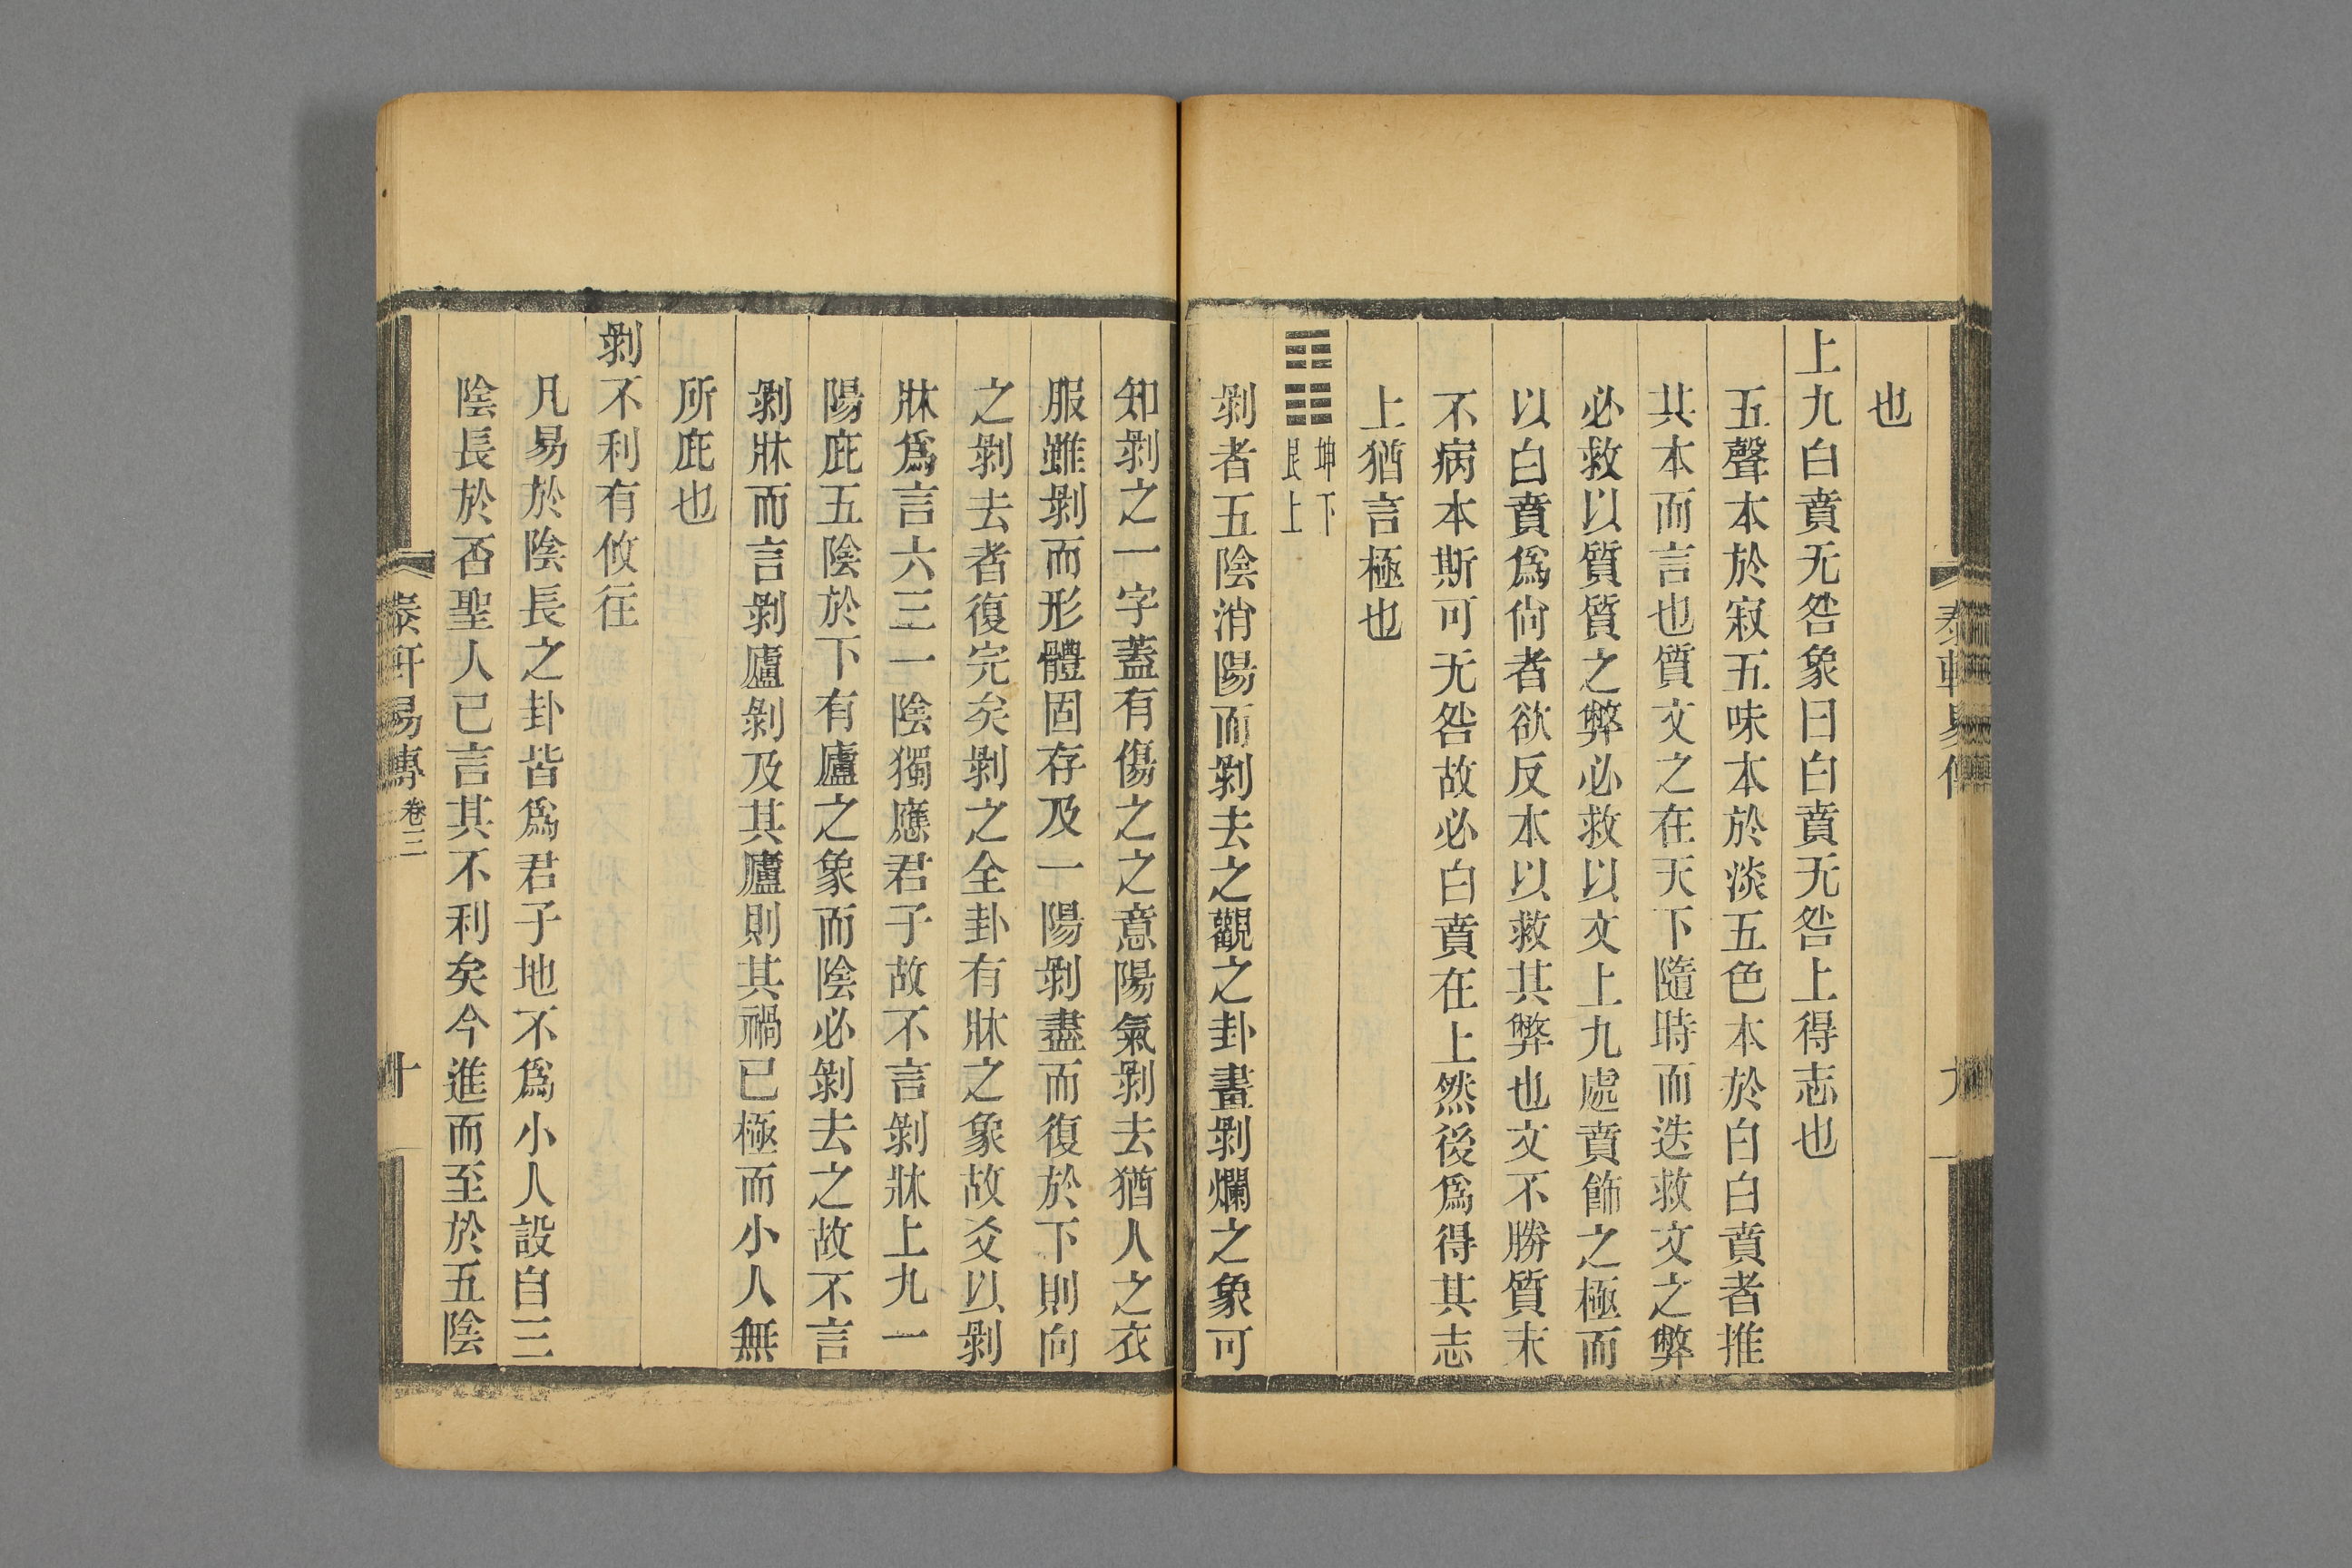 也
上九白賁无咎象曰白賁无咎上得志也
五聲本於寂五味本於淡五色本於白白賁者推
其本而言也質文之在天下隨時而迭救文之弊
必救以質質之弊必救以文上九處賁飾之極而
以白賁爲尙者欲反本以救其弊也文不勝質末
不病本斯可无咎故必白賁在上然後爲得其志
上猶言極也
䷖坤下
艮上
剝者五陰消陽而剝去之觀之卦畫剝爛之象可
知剝之一字蓋有傷之之意陽氣剝去猶人之衣
服雖剝而形體固存及一陽剝盡而復於下則向
之剝去者復完矣剝之全卦有牀之象故爻以剝
牀爲言六三一陰獨應君子故不言剝牀上九一
陽庇五陰於下有廬之象而陰必剝去之故不言
剝牀而言剝廬剝及其廬則其禍已極而小人無
所庇也
剝不利有攸往
凡易於陰長之卦皆爲君子地不爲小人設自三
陰長於否聖人已言其不利矣今進而至於五陰
泰軒易傳 卷三 十